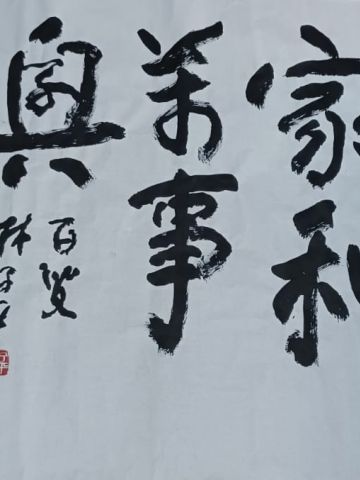 家和
萬事
興
百叟
林